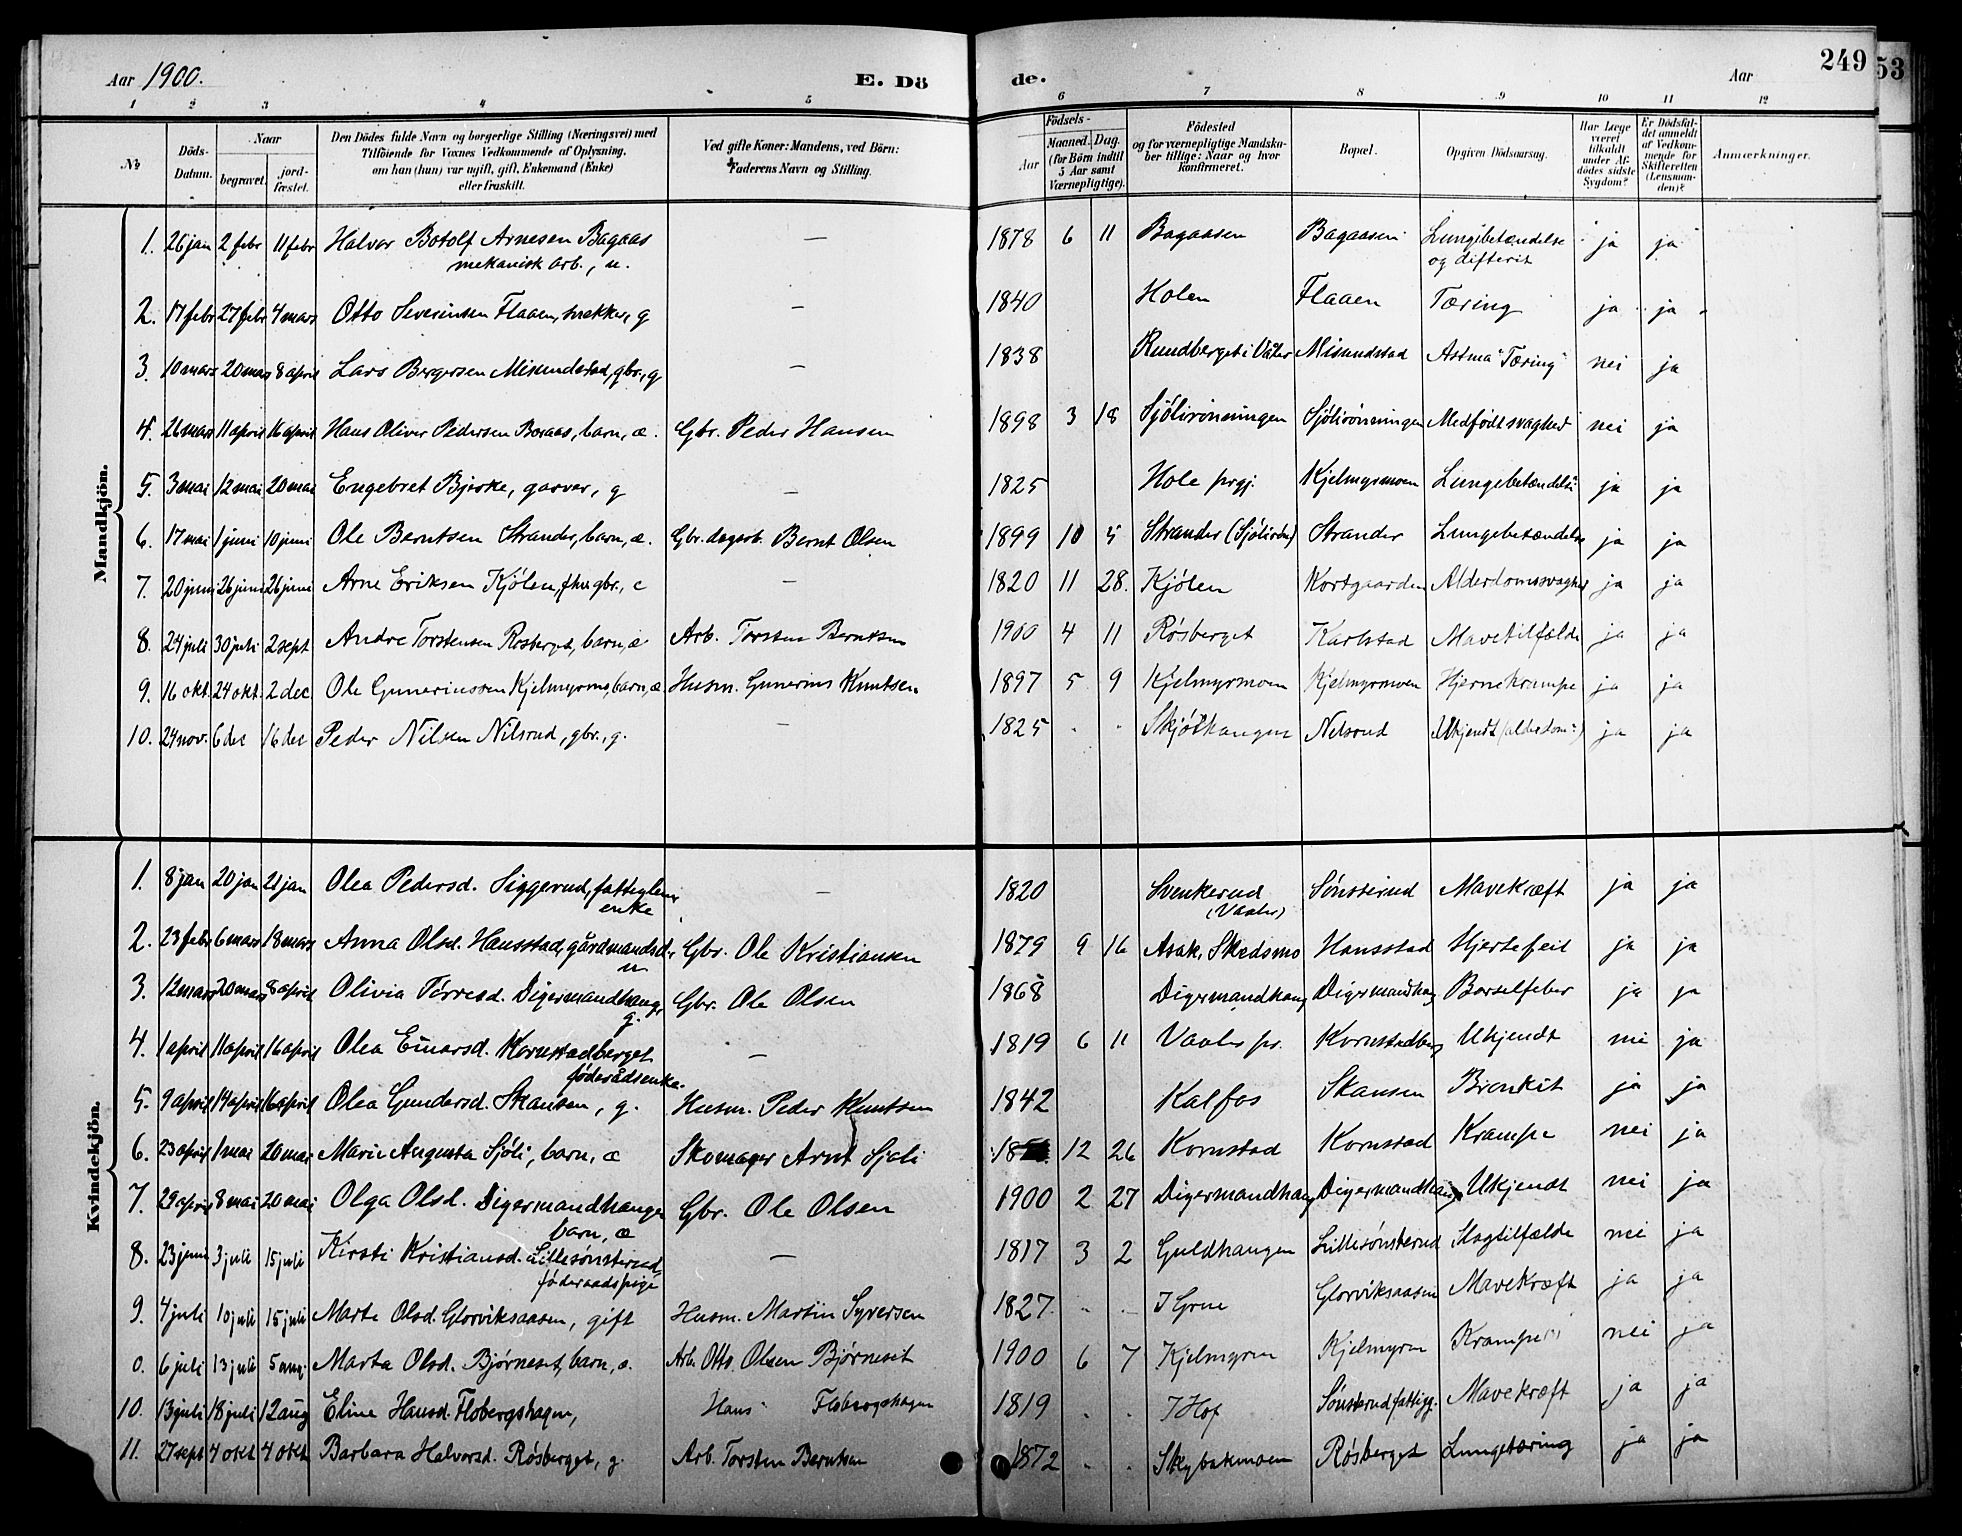 Aar 1900. E. Dö de. Aar 249 53
1 2 3 4 5 6 7 8 9 10 11 12
No Döds-Datum. Naar begravet. jord-fæstet. Den Dödes fulde Navn og borgerlige Stilling (Næringsvei) med Tilföiende for Voxnes Vedkommende af Oplysning, om han (hun) var ugift, gift, Enkemand (Enke) eller fraskilt. Ved gifte Koner: Mandens, ved Börn: Faderens Navn og Stilling. Aar Födsels- Maaned. Dag. (for Börn indtil 5 Aar samt Værnepligtige). Födested og for værnepligtige Mandskaber tillige: Naar og hvor konfirmeret. Bopæl. Opgiven Dödsaarsag. Har Læge været tilkaldt under Afdödes sidste Sygdom? Er Dödsfaldet anmeldt af Vedkommende for Skifteretten (Lensmanden)? Anmærkninger.
Mandkjön.
1. 26 jan 2 febr 11 febr Halvor Botolf Arnesen Bagaas — 1878 6 11 Bagaasen Bagaasen Lungebetændelse ja ja
mekanisk arb., u. og difterit
2. 17 febr 27 febr 4 mars Otto Severinsen Flaaen, snekker, g — 1840 Holen Flaaen Tæring ja ja
3. 10 mars 20 mars 8 april Lars Bergersen Misundstad, gbr., g — 1838 Rundberget i Våler Misundstad Astma "Tæring" nei ja
4. 26 mars 11 april 16 april Hans Oliver Pedersen Beraas, barn, æ. Gbr. Peder Hansen 1898 3 18 Sjölirönningen Sjölirönningen Medfødt svaghed nei ja
5. 3 mai 12 mai 20 mai Engebret Bjerke, garver, g — 1825 Hole prgj. Kjelmyrmoen Lungebetændelse ja ja
6. 17 mai 1 juni 10 juni Ole Berntsen Strander, barn, æ. Gbr. dagarb. Bernt Olsen 1899 10 5 Strander Strander Lungebetændelse ja ja
7. 20 juni 26 juni 26 juni Arne Eriksen Kjölen, fhv. gbr., e — 1820 11 28. Kjølen Kortgaarden Alderdomssvaghed ja ja
8. 24 juli 30 juli 2 sept Andre Torstensen Røsberget, barn, æ Arb. Torsten Berntsen 1900 4 11 Røsberget Karlstad Mavetilfælde ja ja
9. 16 okt. 24 okt. 2 dec Ole Gunerinssen Kjelmyrmo, barn, æ Husm. Gunerius Knutsen 1897 5 9 Kjelmyrmoen Kjelmyrmoen Hjernekrampe ja ja
10. 24 nov. 6 dec 16 dec Peder Nilsen Nilsrud, gbr., g. — 1825 Skjølhaugen Nilsrud Ukjendt (alderdom?) ja ja
Kvindekjön.
1. 8 jan 20 jan 21 jan Olea Pedersd. Siggerud, fattiglem — 1820 Svenkerud Sønsterud Mavekræft ja ja
enke (Vaaler)
2. 23 febr 6 mars 18 mars Anna Olsd. Hansstad, gårdmandsd. Gbr. Ole Kristiansen 1879 9 16 Asak, Skedsmo Hansstad Hjertefeil ja ja
u
3. 12 mars 20 mars 8 april Olivia Tørresd. Digermandhaug, Gbr. Ole Olsen 1868 Digermandhaug Digermandhaug Barselfeber ja ja
g.
4. 1 april 11 april 16 april Olea Einarsd. Kornstadberget — 1819 6 11 Vaaler pr. Kornstadberg Ukjendt nei ja
føderådsenke.
5. 9 april 14 april 16 april Olea Gundersd. Skansen, g. Husm. Peder Knutsen 1842 Kalfos Skansen Bronkit ja ja
6. 23 april 1 mai 20 mai Marie Augusta Sjöli, barn, æ Skomager Arnt Sjøli 18 12 26 Kornstad Kornstad Krampe nei ja
7. 29 april 8 mai 20 mai Olga Olsd. Digermandhaugen Gbr. Ole Olsen 1900 2 27 Digermandhaug Digermandhaug Ukjendt nei ja
barn, æ
8. 23 juni 3 juli 15 juli Kersti Kristiansd. Lillesønsterud, — 1817 3 2 Guldhaugen Lillesønsterud Slagtilfælde nei ja
føderaadspige
9. 4 juli 10 juli 15 juli Marte Olsd. Glorviksaasen, gift Husm. Martin Syversen 1827. I Grue Glorviksaasen Mavekræft ja ja
0. 6 juli 13 juli 5 aug. Marta Olsd. Bjørneset, barn, æ. Arb. Otto Olsen Bjørneset 1900 6 7 Kjelmyrm Kjelmyrm Krampe nei ja
10. 13 juli 18 juli 12 aug Eline Hansd. Flobergshagen, Hans Flobergshagen 1819 I Hof Sønsterud fattigg. Mavekræft ja ja
11. 27 sept 4 okt 4 okt Barbara Halvorsd. Røsberget, g. Arb. Torsten Berntsen 1872 Skybakmoen Røsberget Lungetæring ja ja